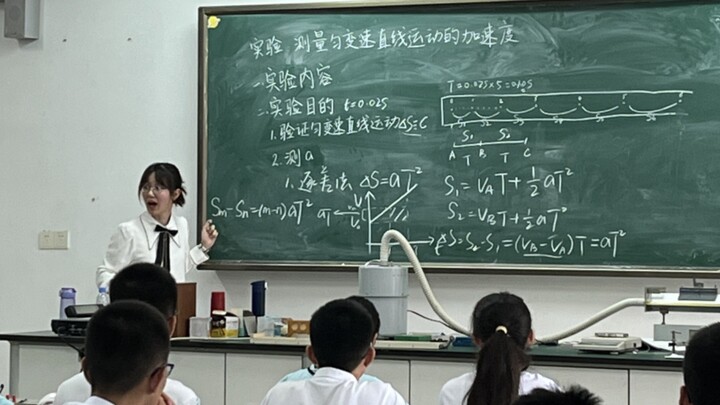 实验 测量匀变速直线运动的加速度
一.实验内容
二.实验目的 t=0.02s
1.验证匀变速直线运动ΔS=C
2.测a
1.逐差法 ΔS=aT²
Sm-Sn=(m-n)aT²
aT
V
t
T=0.02s×5=0.10s
S₁ S₂
A T B T C
S₁=VAT+½aT²
S₂=VBT+½aT²
ΔS=S₂-S₁=(VB-VA)T=aT²